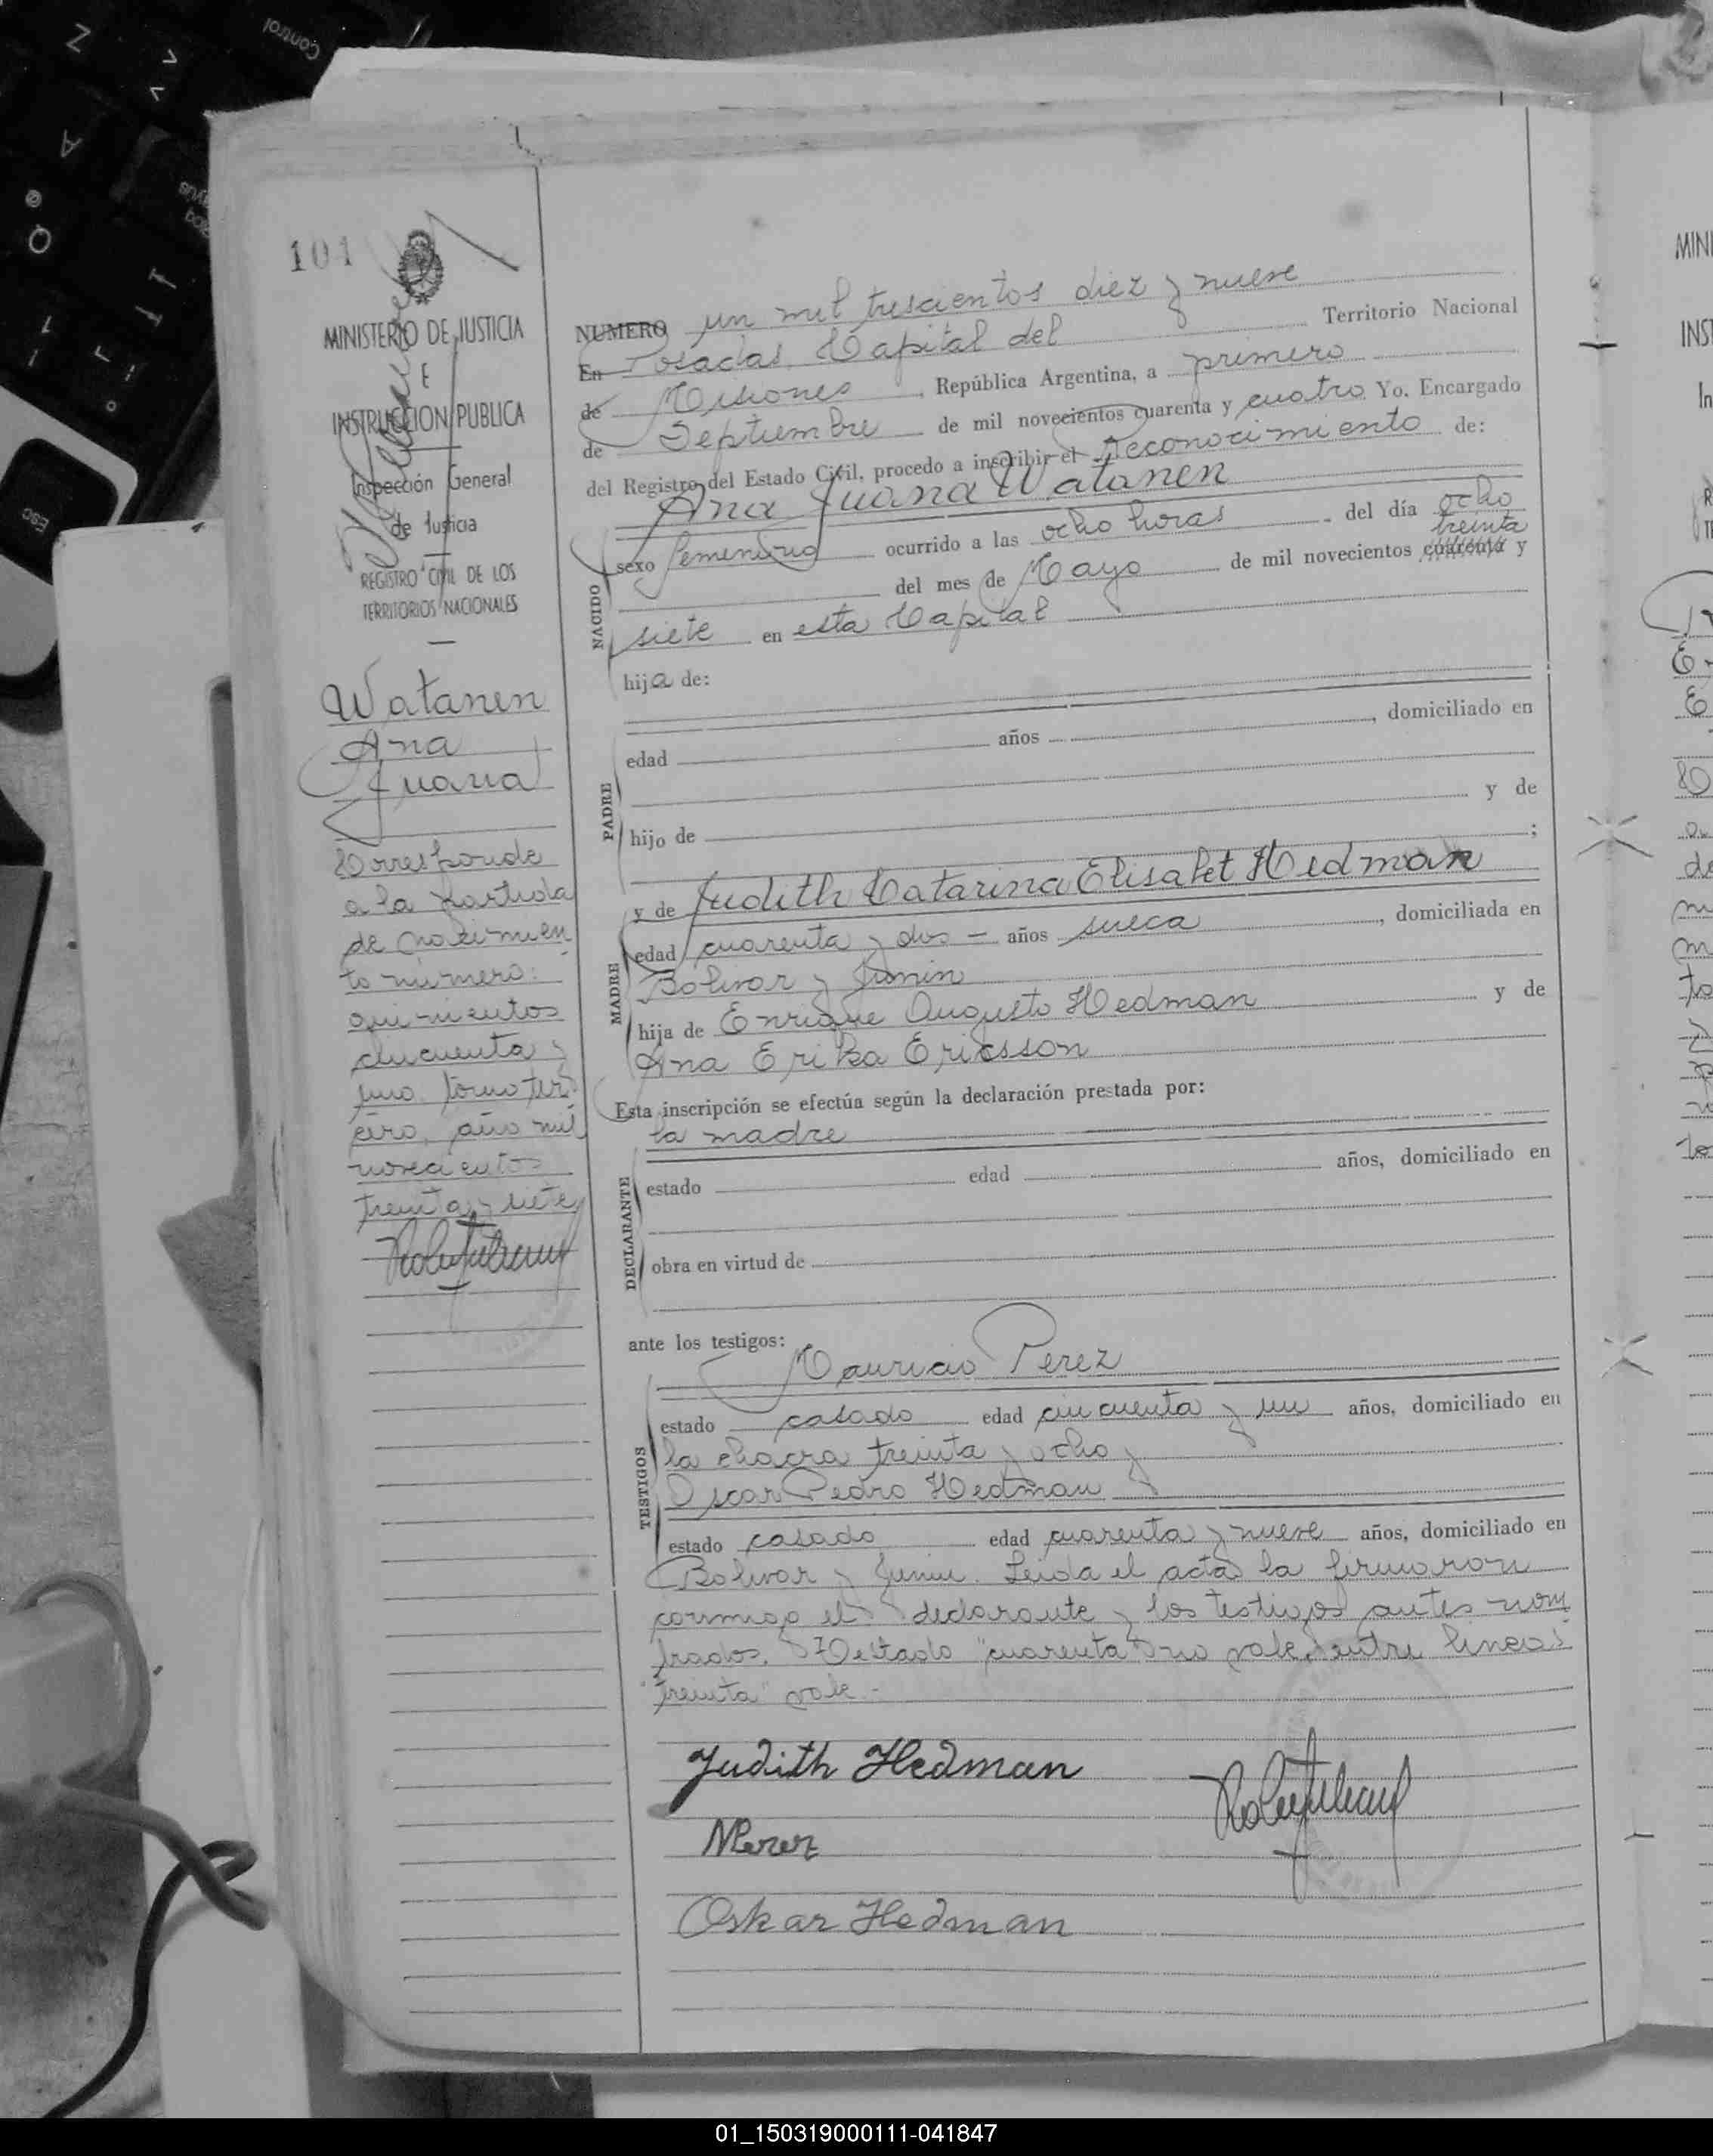 101
MINISTERIO DE JUSTICIA
E
INSTRUCCION PUBLICA
Inspección General
de Justicia
REGISTRO CIVIL DE LOS
TERRITORIOS NACIONALES
Watanen
Ana
Juana
Corresponde
a la partida
de nacimien
to número:
quinientos
cincuenta y
uno, tomo ter
cero, año mil
novecientos
treinta y siete
NUMERO un mil trescientos diez y nueve
En Posadas, Capital del Territorio Nacional
de Misiones, República Argentina, a primero
de Septiembre de mil novecientos cuarenta y cuatro Yo, Encargado
del Registro del Estado Civil, procedo a inscribir el Reconocimiento de:
Ana Juana Watanen
NACIDO
sexo femenino ocurrido a las ocho horas del día ocho
treinta
del mes de Mayo de mil novecientos cuarenta y
siete en esta Capital
hija de:
PADRE
edad años, domiciliado en
hijo de y de
;
MADRE
y de Judith Catarina Elisabet Hedman
edad cuarenta y dos - años sueca, domiciliada en
Bolivar y Junin
hija de Enrique Augusto Hedman y de
Ana Erika Ericsson
Esta inscripción se efectúa según la declaración prestada por:
la madre
DECLARANTE
estado edad años, domiciliado en
obra en virtud de
ante los testigos:
Mauricio Perez
TESTIGOS
estado casado edad cincuenta y un años, domiciliado en
la chacra treinta y ocho y
Oscar Pedro Hedman
estado casado edad cuarenta y nueve años, domiciliado en
Bolivar y Junin. Leida el acta la firmaron
conmigo el declarante y los testigos antes nom
brados. Testado "cuarenta" no vale, entre lineas
"treinta" vale.-
Judith Hedman
MPerez
Oskar Hedman
MINI
INST
In
ESC
Control
Z
A
Q
@
01_150319000111-041847